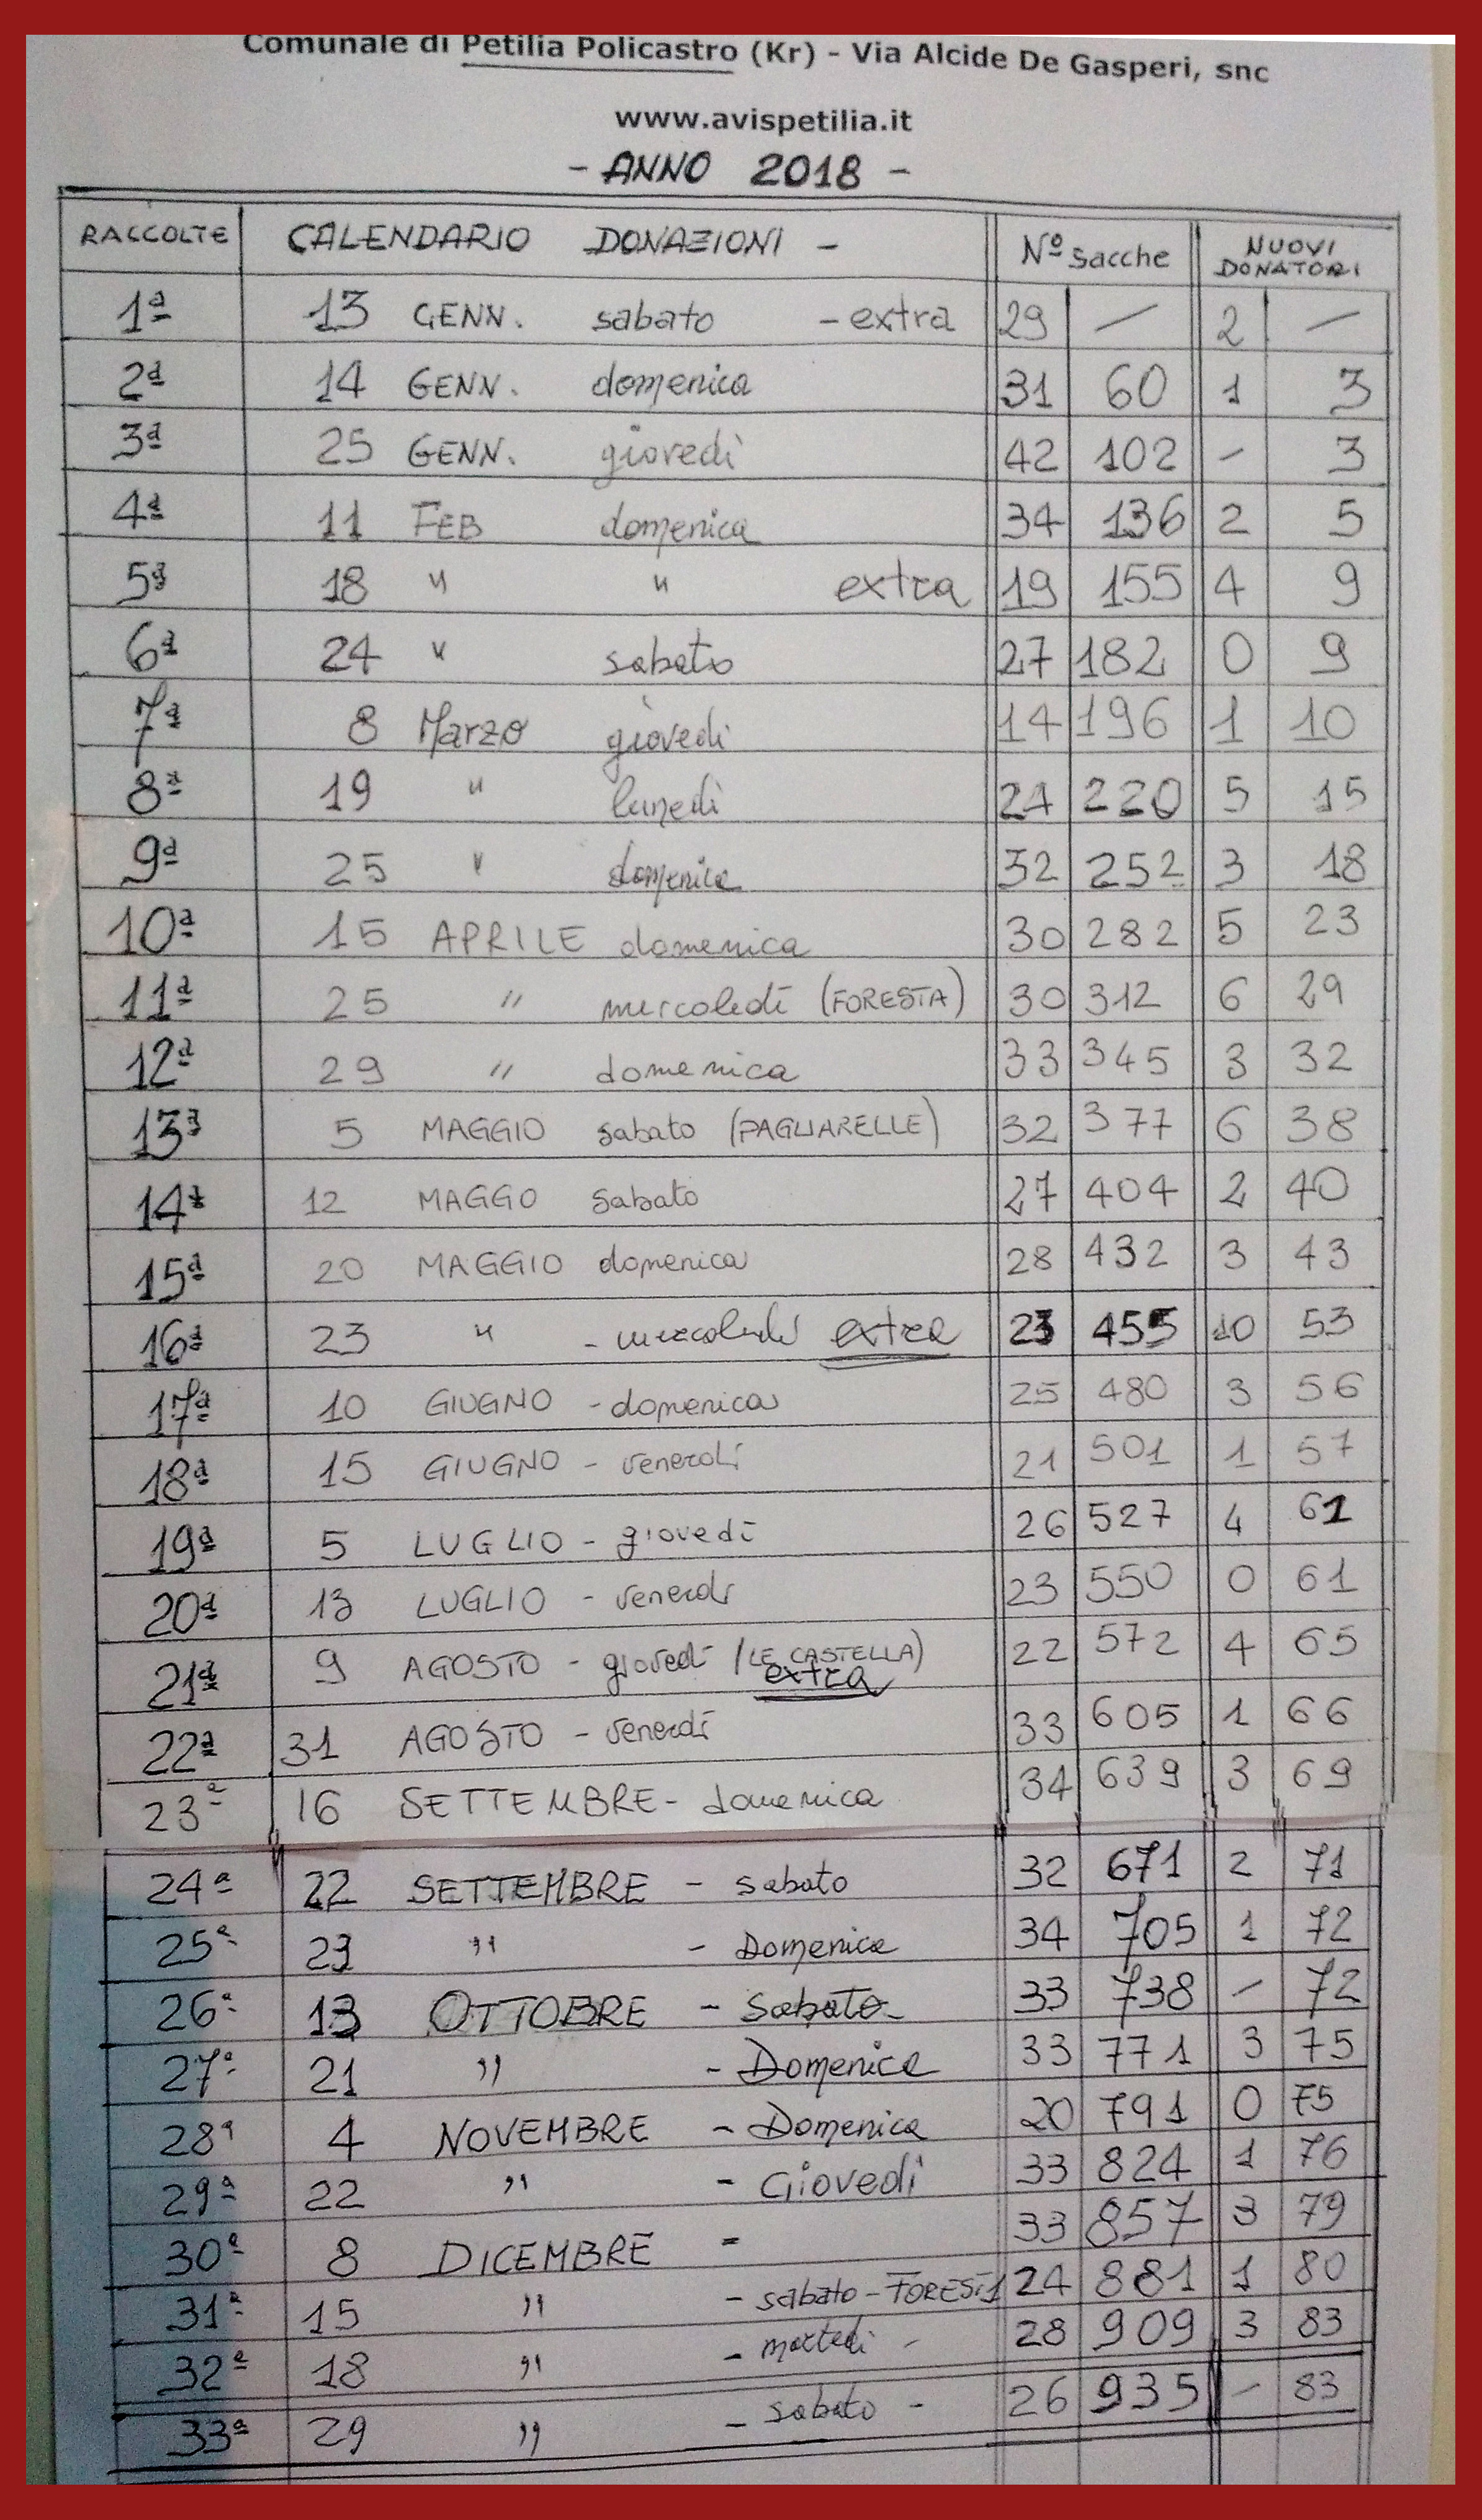 Comunale di Petilia Policastro (Kr) - Via Alcide De Gasperi, snc
www.avispetilia.it
- ANNO 2018 -
RACCOLTE CALENDARIO DONAZIONI - Nº sacche NUOVI DONATORI
1ª 13 GENN. sabato - extra 29 — 2 —
2ª 14 GENN. domenica 31 60 1 3
3ª 25 GENN. giovedì 42 102 - 3
4ª 11 FEB domenica 34 136 2 5
5ª 18 " " extra 19 155 4 9
6ª 24 " sabato 27 182 0 9
7ª 8 Marzo giovedì 14 196 1 10
8ª 19 " lunedì 24 220 5 15
9ª 25 " domenica 32 252 3 18
10ª 15 APRILE domenica 30 282 5 23
11ª 25 " mercoledì (FORESTA) 30 312 6 29
12ª 29 " domenica 33 345 3 32
13ª 5 MAGGIO sabato (PAGLIARELLE) 32 377 6 38
14ª 12 MAGGO sabato 27 404 2 40
15ª 20 MAGGIO domenica 28 432 3 43
16ª 23 " - mercoledì extra 23 455 10 53
17ª 10 GIUGNO - domenica 25 480 3 56
18ª 15 GIUGNO - venerdì 21 501 1 57
19ª 5 LUGLIO - giovedì 26 527 4 61
20ª 13 LUGLIO - venerdì 23 550 0 61
21ª 9 AGOSTO - giovedì (LE CASTELLA) extra 22 572 4 65
22ª 31 AGOSTO - venerdì 33 605 1 66
23ª 16 SETTEMBRE - domenica 34 639 3 69
24ª 22 SETTEMBRE - sabato 32 671 2 71
25ª 23 " - Domenica 34 705 1 72
26ª 13 OTTOBRE - Sabato - 33 738 - 72
27ª 21 " - Domenica 33 771 3 75
28ª 4 NOVEMBRE - Domenica 20 791 0 75
29ª 22 " - Giovedì 33 824 1 76
30ª 8 DICEMBRE - 33 857 3 79
31ª 15 " - sabato - FORESTA 24 881 1 80
32ª 18 " - martedì - 28 909 3 83
33ª 29 " - sabato - 26 935 - 83